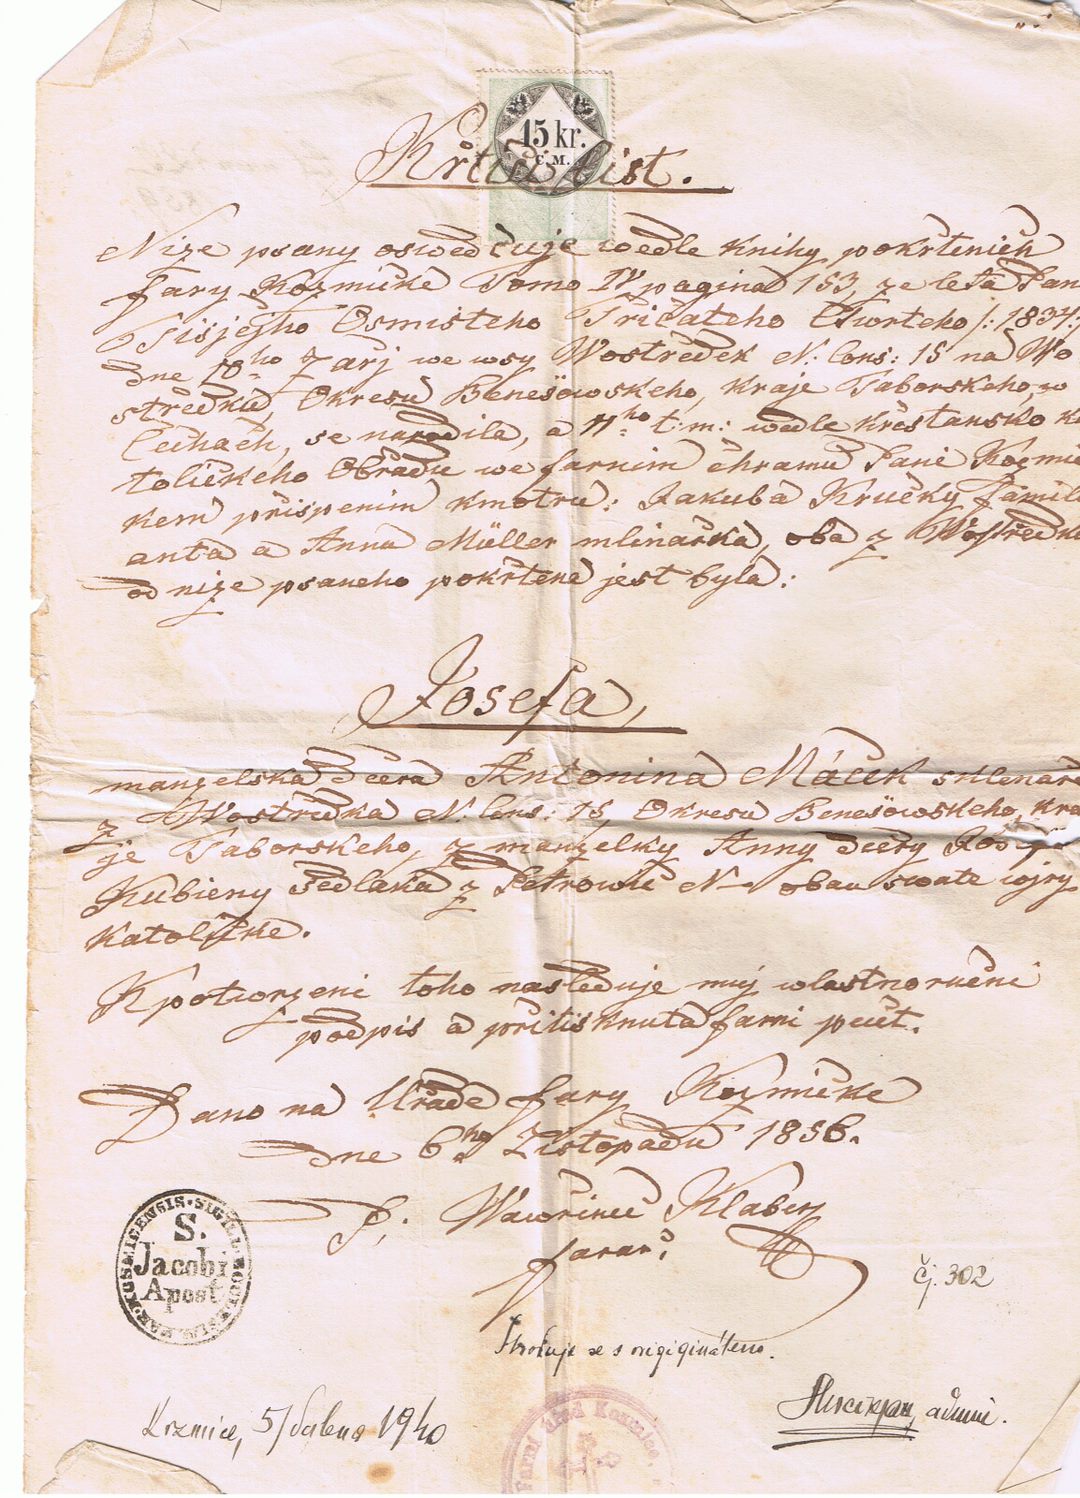 15 kr.
C.M.
Křticí list.
Niže psany oswědčuje wedle knihy pokřtenich
fary Kozmicke Tomo IV pagina 153, ze leta Pan
Tisjcjho Osmisteho Třicateho Čtwrteho /: 1834:/
dne 10ho Zařj we wsy Wostředek N: Cons: 15 na Wo
středku, Okresu Benešowskeho, kraje Taborskeho, w
Čechach, se narodila, a 11ho t: m: wedle křestansko ka
tolickeho Obřadu we farnim chramu Paně Kozmic
kem přispenim kmotru: Jakuba Kručky Famili
anta a Anna Müller mlinařka, oba z Wostředku
od niže psaneho pokřtena jest byla:
Josefa,
manzelska dcera Antonina Máček sklenařa
z Wostředka N: Cons: 15, Okresu Benešowskeho, kra
je Taborskeho, z manzelky Anny dcery
Kubieny sedlaka z Petrowic N— obau swate wjry
katolicke.
K potwrzeni toho nasleduje muj wlastnoručni
podpis a přitisknuta farni pečet.
Dano na Uřadě fary Kozmicke
dne 6ho Listopadu 1856.
P. Wawřinec Klabez
farař
S.
Jacobi
Apost
čj. 302
se s origiginálem.
Kozmice, 5/ dubna 1940
admi.
Farní úřad Kozmice